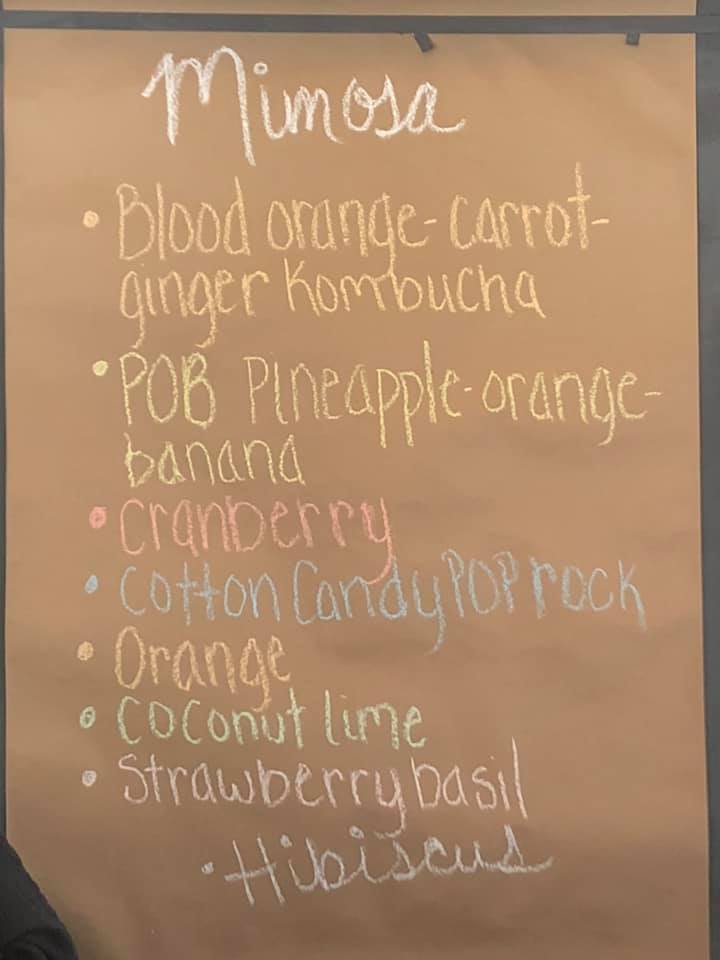 Mimosa
• Blood orange-carrot-
ginger Kombucha
• POB Pineapple-orange-
banana
• Cranberry
• Cotton Candy POP rock
• Orange
• Coconut lime
• Strawberry basil
• Hibiscus